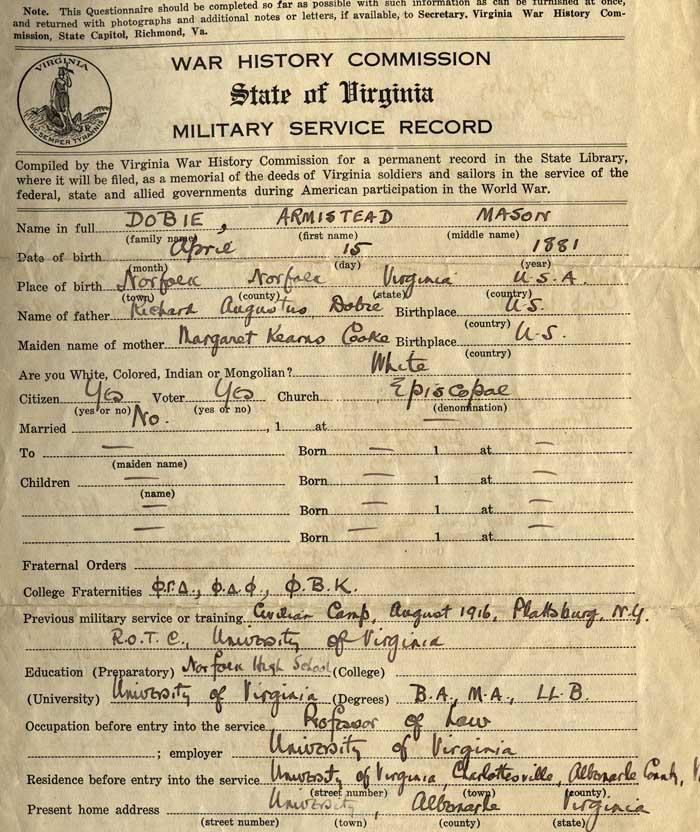 Note. This Questionnaire should be completed so far as possible with such information as can be furnished at once,
and returned with photographs and additional notes or letters, if available, to Secretary, Virginia War History Com-
mission, State Capitol, Richmond, Va.
VIRGINIA
SIC SEMPER TYRANNIS
WAR HISTORY COMMISSION
State of Virginia
MILITARY SERVICE RECORD
Compiled by the Virginia War History Commission for a permanent record in the State Library,
where it will be filed, as a memorial of the deeds of Virginia soldiers and sailors in the service of the
federal, state and allied governments during American participation in the World War.
Name in full DOBIE, ARMISTEAD MASON
(family name) (first name) (middle name)
Date of birth April 15 1881
(month) (day) (year)
Place of birth Norfolk Norfolk Virginia U.S.A.
(town) (county) (state) (country)
Name of father Richard Augustus Dobie Birthplace U.S.
(country)
Maiden name of mother Margaret Kearns Cooke Birthplace U.S.
(country)
Are you White, Colored, Indian or Mongolian? White
Citizen Yes Voter Yes Church Episcopal
(yes or no) (yes or no) (denomination)
Married No. , 1 at —
To — Born — 1 at —
(maiden name)
Children — Born — 1 at —
(name)
— Born — 1 at —
— Born — 1 at —
Fraternal Orders
College Fraternities Φ.Γ.Δ., Φ.Δ.Φ., Φ.B.K.
Previous military service or training Civilian Camp, August 1916, Plattsburg, N.Y.
R.O.T.C., University of Virginia
Education (Preparatory) Norfolk High School (College)
(University) University of Virginia (Degrees) B.A., M.A., LL.B.
Occupation before entry into the service Professor of Law
; employer University of Virginia
Residence before entry into the service University of Virginia, Charlottesville, Albemarle County, V
(street number) (town) (county)
Present home address University, Albemarle Virginia
(street number) (town) (county) (state)